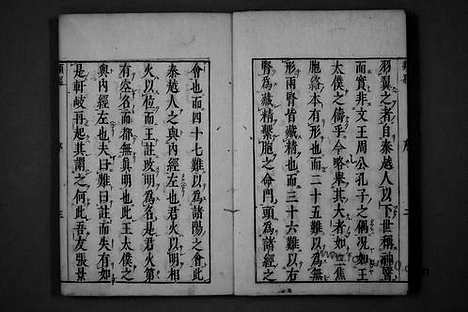 羽翼之者自秦越人以下世稱神醫
而實非文王周公孔子之偶況如王
太僕之儔乎今略舉其大者如三焦
胞絡本有形也而二十五難以為無
形兩腎皆藏精也而三十六難以右
腎為藏精繫胞之命門頭為諸陽之
會也而四十七難以為諸陽之會此
秦越人之與內經左也君火以明相
火以位而王註改明為名是君火第
有空名而都無眞明也此王太僕之
與內經左也夫曰難曰註而失有如
是軒岐再起其謂之何此吾友張景